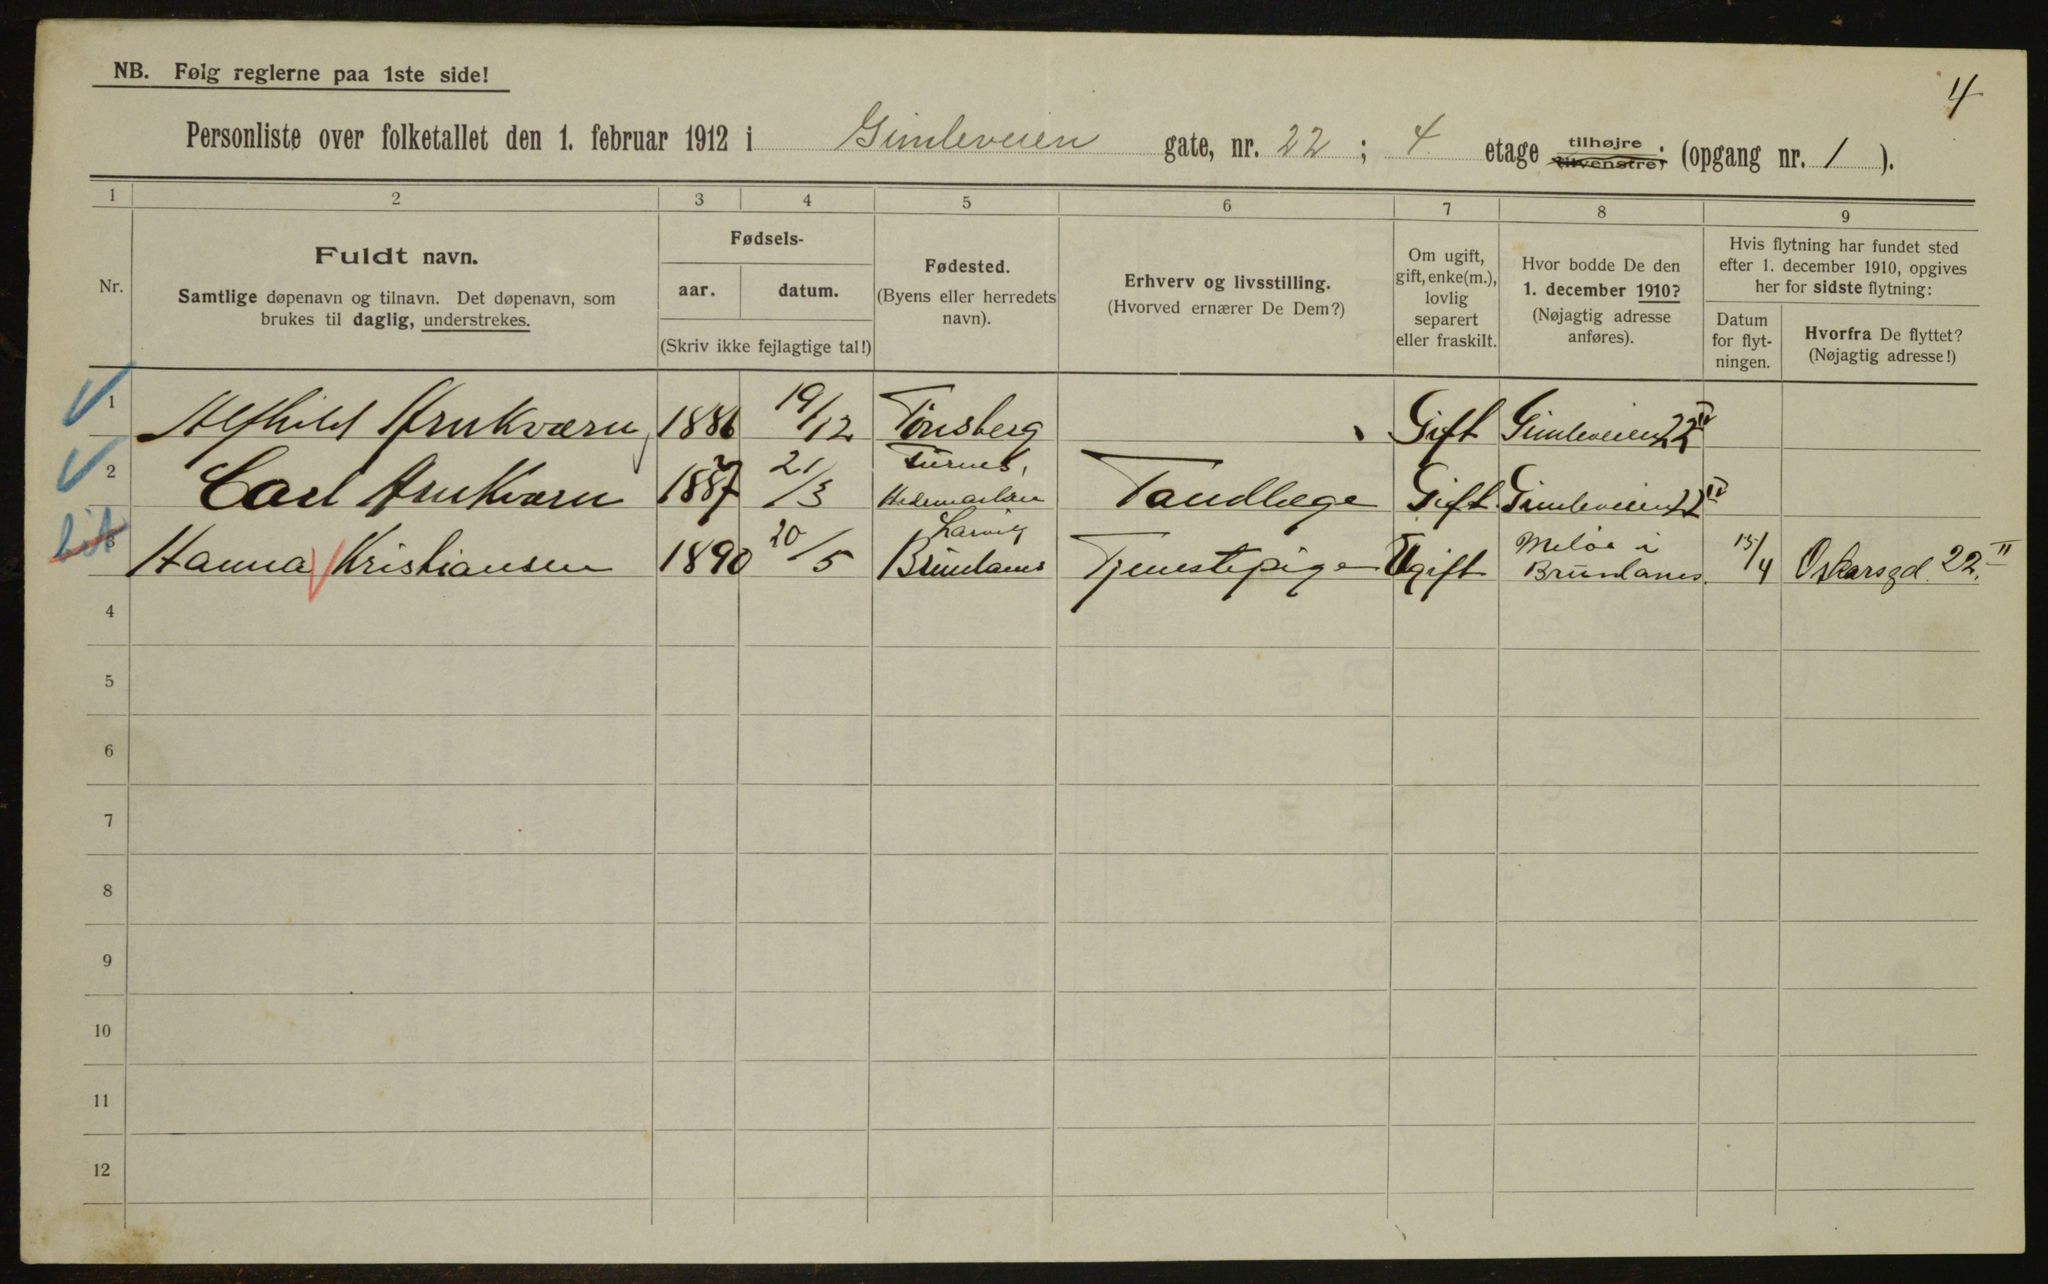 4
NB. Følg reglerne paa 1ste side!
Personliste over folketallet den 1. februar 1912 i Gimleveien gate, nr. 22 ; 4 etage tilhøjre tilvenstre; (opgang nr. 1 ).
1 2 3 4 5 6 7 8 9
Nr.
Fuldt navn.
Samtlige døpenavn og tilnavn. Det døpenavn, som
brukes til daglig, understrekes.
Fødsels-
aar. datum.
(Skriv ikke fejlagtige tal!)
Fødested.
(Byens eller herredets
navn).
Erhverv og livsstilling.
(Hvorved ernærer De Dem?)
Om ugift,
gift, enke(m.),
lovlig
separert
eller fraskilt.
Hvor bodde De den
1. december 1910?
(Nøjagtig adresse
anføres).
Hvis flytning har fundet sted
efter 1. december 1910, opgives
her for sidste flytning:
Datum
for flyt-
ningen.
Hvorfra De flyttet?
(Nøjagtig adresse!)
1 Alfhild Arnkværn 1886 19/12 Tønsberg Gift Gimleveien 22 IV
2 Carl Arnkværn 1887 21/3 Hedemarken Tandlæge Gift Gimleveien 22 IV
3 Hanna Kristiansen 1890 20/5 Larvig Brunlanes Tjenestepige Ugift Meløe i Brunlanes. 15/4 Oskarsgd. 22. II
4
5
6
7
8
9
10
11
12